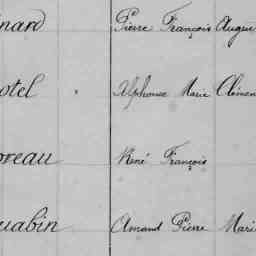 inard Pierre François Augus
otel Alphonse Marie Clémen
oreau René François
uabin Amand Pierre Mari